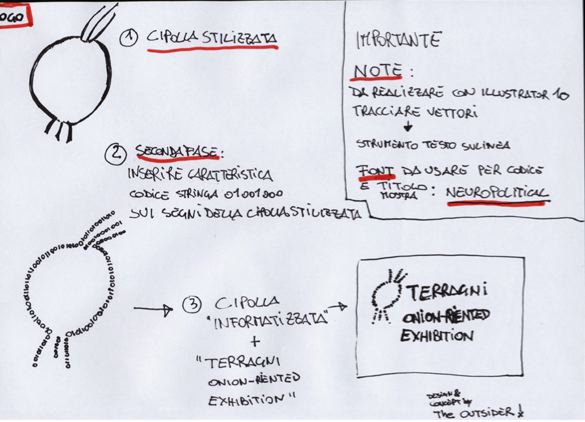 LOGO
① CIPOLLA STILIZZATA
② SECONDA FASE:
INSERIRE CARATTERISTICA
CODICE STRINGA 01001000
SUI SEGNI DELLA CIPOLLA STILIZZATA
IMPORTANTE
NOTE:
DA REALIZZARE CON ILLUSTRATOR 10
TRACCIARE VETTORI
STRUMENTO TESTO SU LINEA
FONT DA USARE PER CODICE
E TITOLO MOSTRA: NEUROPOLITICAL
③ CIPOLLA
"INFORMATIZZATA"
+
"TERRAGNI
ONION-RIENTED
EXHIBITION"
TERRAGNI
ONION-RIENTED
EXHIBITION
DESIGN &
CONCEPT by
The OUTSIDER!